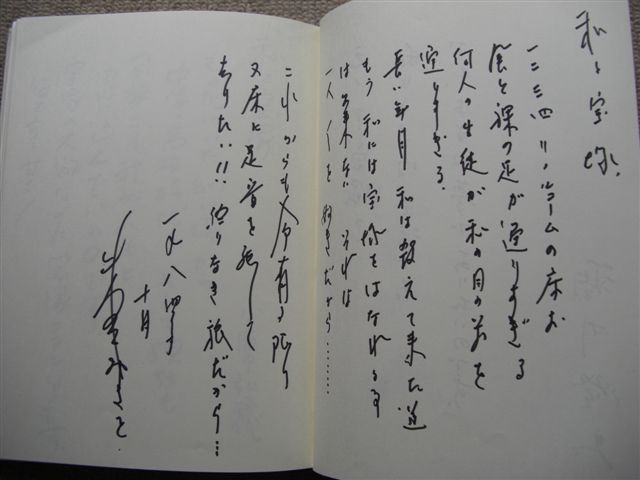 私と宝塚
一二三四リハルームの床を
風と裸の足が通りすぎる
何人の生徒が私の目の前を
通りすぎる。
長い年月 私は数えて来た道
もう私には宝塚をはなれる事
は出来ない それは
一人一人を好きだから………
これからも命有る限り
又床に足音を残して
ありたい!! 終りなき旅だから…
一九八四年
十月